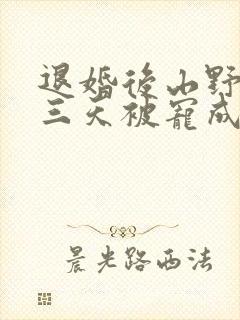 退婚後山野
三天被寵成
晨光路西法